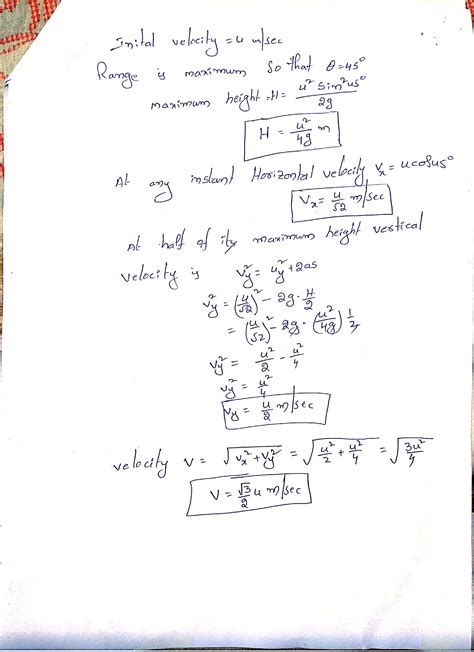 Inital velocity = u m/sec
Range is maximum So that θ=45°
maximum height H = u² Sin²45° / 2g
H = u²/4g m
At any instant Horizontal velocity Vx = ucos45°
Vx = u/√2 m/sec
At half of its maximum height vertical
velocity is Vy² = uy² + 2as
Vy² = (u/√2)² - 2g · H/2
= (u/√2)² - 2g · (u²/4g) 1/2
Vy² = u²/2 - u²/4
Vy² = u²/4
Vy = u/2 m/sec
velocity V = √(Vx² + Vy²) = √(u²/2 + u²/4) = √(3u²/4)
V = √3/2 u m/sec